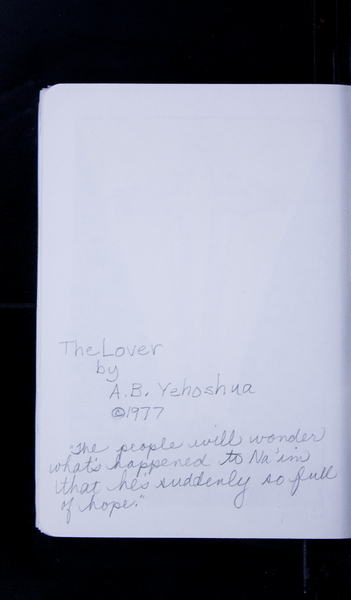 The Lover
by
A.B. Yehoshua
©1977
"The people will wonder
what's happened to Na'im
that he's suddenly so full
of hope."